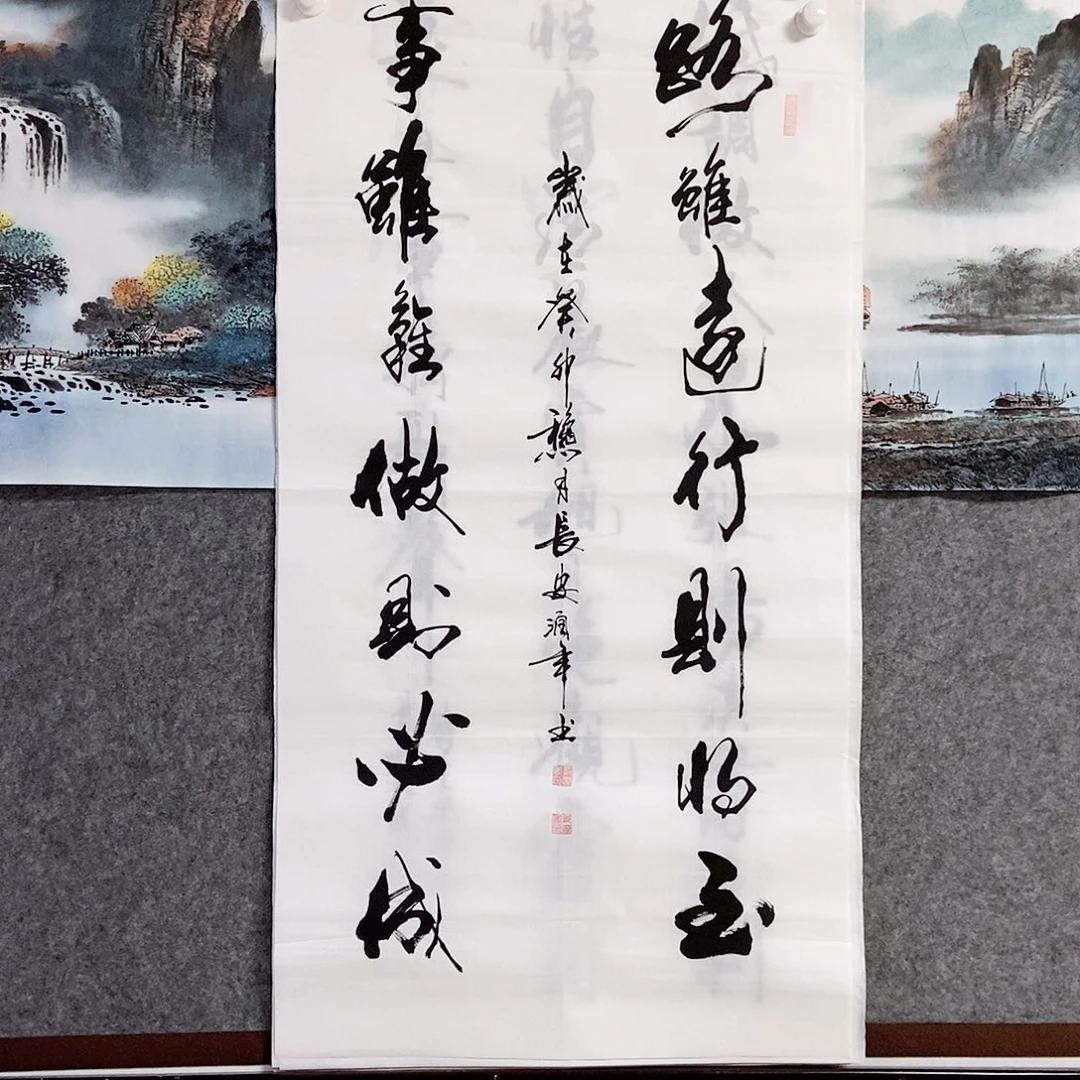 路雖遠行則將至
歲在癸卯穐月長安潤年書
事雖難做則必成